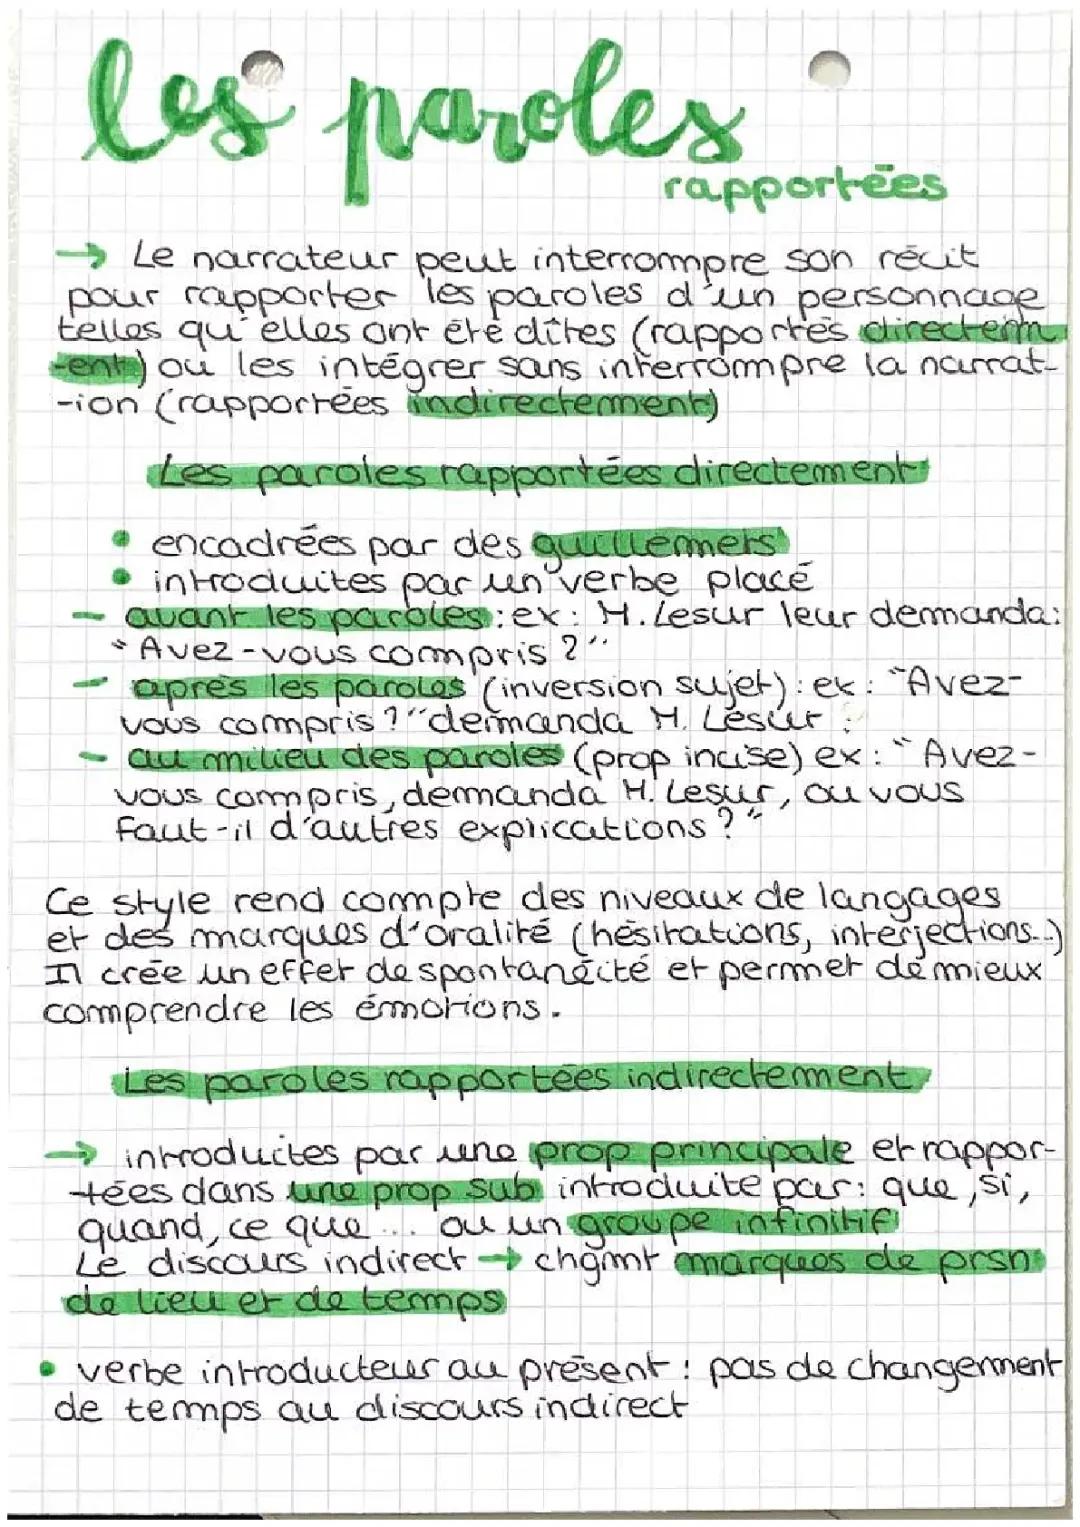 les paroles
rapportées
→ Le narrateur peut interrommpre son récit
pour rapporter les paroles d'un personnage
telles qu'elles ont été dîtes (rapportés directem
-ent) ou les intégrer sans interrompre la narrat-
-ion (rapportées indirectement)
Les paroles rapportées directement
• encadrées par des guillemets
• introduites par un verbe placé
- avant les paroles : ex : M. Lesur leur demanda :
"Avez-vous compris ?"
- après les paroles (inversion sujet) : ex : "Avez-
vous compris ?" demanda M. Lesur
- au milieu des paroles (prop incise) ex : "Avez-
vous compris, demanda M. Lesur, ou vous
faut-il d'autres explications ?"
Ce style rend compte des niveaux de langages
et des marques d'oralité (hésitations, interjections...)
Il crée un effet de spontanéité et permet de mieux
comprendre les émotions.
Les paroles rapportées indirectement
→ introduites par une prop principale et rappor-
-tées dans une prop sub introduite par : que, si,
quand, ce que ... ou un groupe infinitif
Le discours indirect → chgmt marques de prsn
de lieu et de temps
• verbe introducteur au présent : pas de changement
de temps au discours indirect